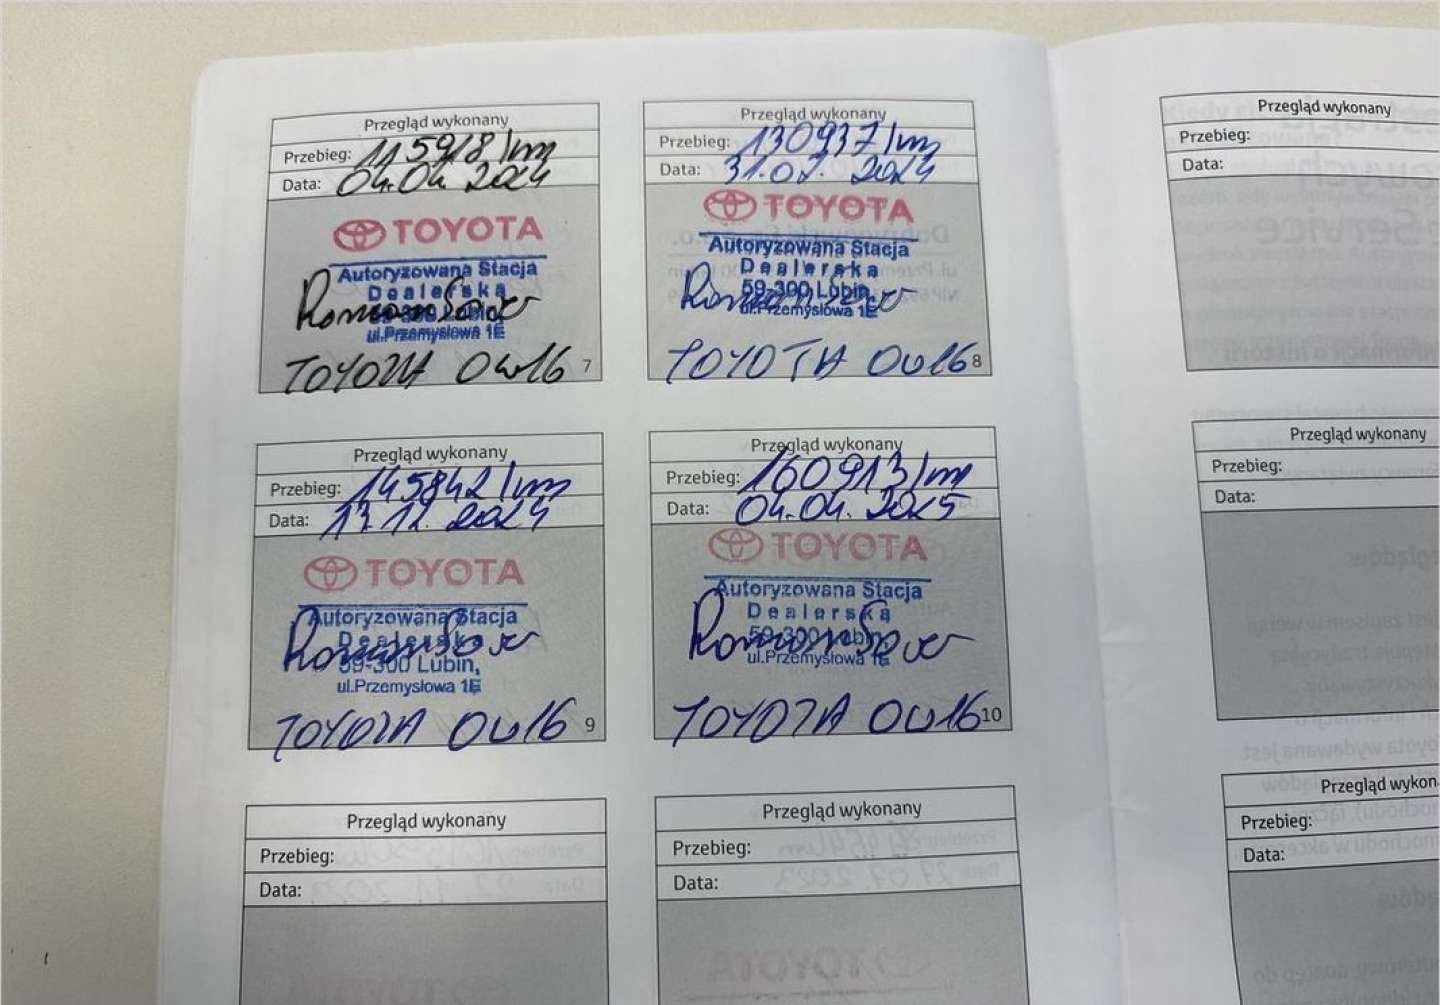 Przegląd wykonany
Przebieg: 115918/km
Data: 04.04.2024
TOYOTA
Autoryzowana Stacja
Dealerska
59-300 Lubin,
ul.Przemysłowa 1E
TOYOTA 0w16
7
Przegląd wykonany
Przebieg: 130937/km
Data: 31.07.2024
TOYOTA
Autoryzowana Stacja
Dealerska
59-300 Lubin,
ul.Przemysłowa 1E
TOYOTA 0w16
8
Przegląd wykonany
Przebieg: 145842/km
Data: 2024
TOYOTA
Autoryzowana Stacja
Dealerska
59-300 Lubin,
ul.Przemysłowa 1E
TOYOTA 0w16
9
Przegląd wykonany
Przebieg: 160913/km
Data: 04.04.2025
TOYOTA
Autoryzowana Stacja
Dealerska
59-300 Lubin,
ul.Przemysłowa 1E
TOYOTA 0w16
10
Przegląd wykonany
Przebieg:
Data:
Przegląd wykonany
Przebieg:
Data:
Przegląd wykonany
Przebieg:
Data:
Przegląd wykonany
Przebieg:
Data:
Przegląd wykon
Przebieg:
Data: